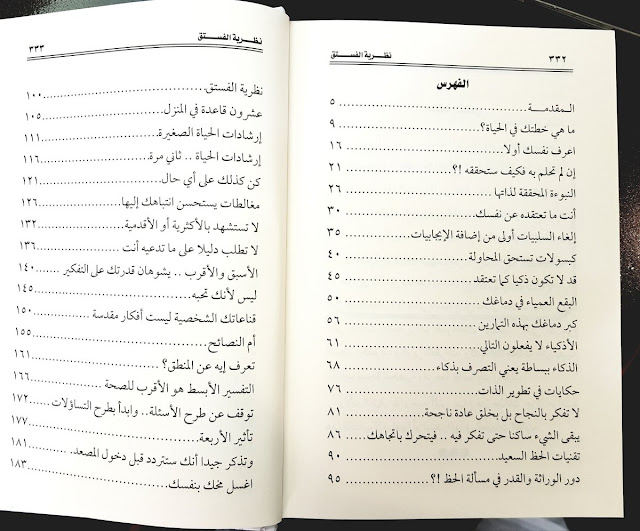 ٣٣٢ نظرية الفستق
الفهرس
المقدمة ٥
ما هي خطتك في الحياة؟ ٩
اعرف نفسك أولا ١٦
إن لم تحلم به فكيف ستحققه !؟ ٢١
النبوءة المحققة لذاتها ٢٦
أنت ما تعتقده عن نفسك ٣٠
إلغاء السلبيات أولى من إضافة الإيجابيات ٣٥
كبسولات تستحق المحاولة ٤٠
قد لا تكون ذكيا كما تعتقد ٤٥
البقع العمياء في دماغك ٥٠
كبر دماغك بهذه التمارين ٥٦
الأذكياء لا يفعلون التالي ٦١
الذكاء ببساطة يعني التصرف بذكاء ٦٨
حكايات في تطوير الذات ٧٦
لا تفكر بالنجاح بل بخلق عادة ناجحة ٨١
يبقى الشيء ساكنا حتى تفكر فيه .. فيتحرك باتجاهك ٨٦
تقنيات الحظ السعيد ٩٠
دور الوراثة والقدر في مسألة الحظ !؟ ٩٥
نظرية الفستق ٣٣٣
نظرية الفستق ١٠٠
عشرون قاعدة في المنزل ١٠٥
إرشادات الحياة الصغيرة ١١١
إرشادات الحياة .. ثاني مرة ١١٦
كن كذلك على أي حال ١٢١
مغالطات يستحسن انتباهك إليها ١٢٦
لا تستشهد بالأكثرية أو الأقدمية ١٣٢
لا تطلب دليلا على ما تدعيه أنت ١٣٦
الأسبق والأقرب .. يشوهان قدرتك على التفكير ١٤٠
ليس لأنك تحبه ١٤٥
قناعاتك الشخصية ليست أفكار مقدسة ١٥٠
أم النصائح ١٥٥
تعرف إيه عن المنطق؟ ١٦١
التفسير الأبسط هو الأقرب للصحة ١٦٦
توقف عن طرح الأسئلة.. وابدأ بطرح التساؤلات ١٧٢
تأثير الأربعة ١٧٧
وتذكر جيدا أنك ستتردد قبل دخول المصعد ١٨١
اغسل مخك بنفسك ١٨٣